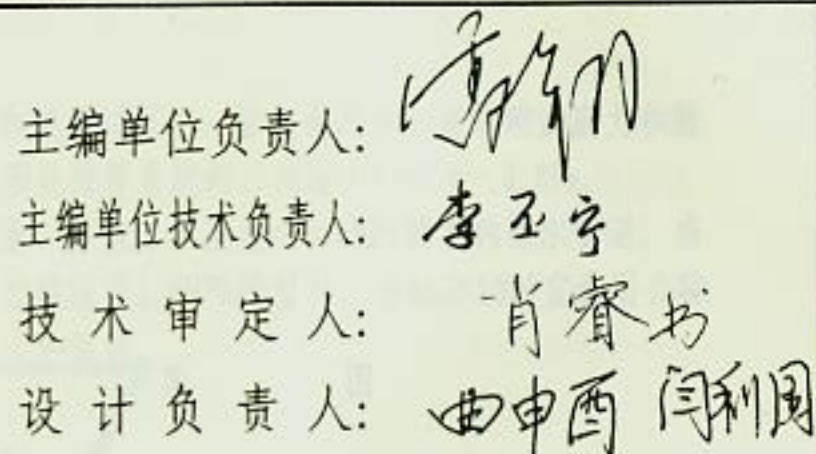 主编单位负责人:
主编单位技术负责人: 李丕宁
技术审定人: 肖睿书
设计负责人: 曲申酉 闫利国